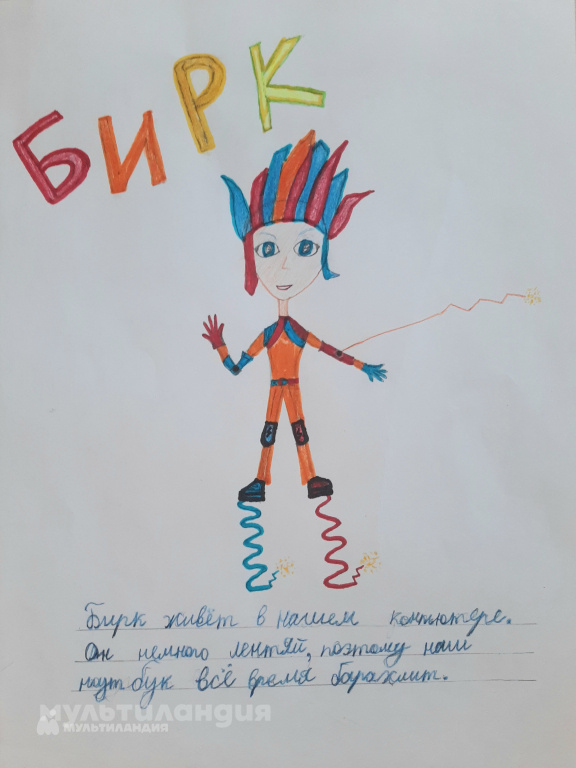 БИРК
Бирк живёт в нашем компьютере.
Он немного лентяй, поэтому наш
ноутбук всё время барахлит.
мультиландия
МУЛЬТИЛАНДИЯ